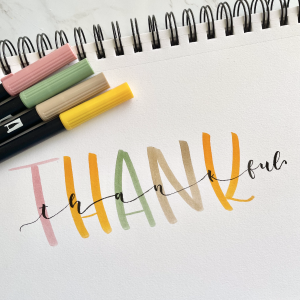 THANK
thankful